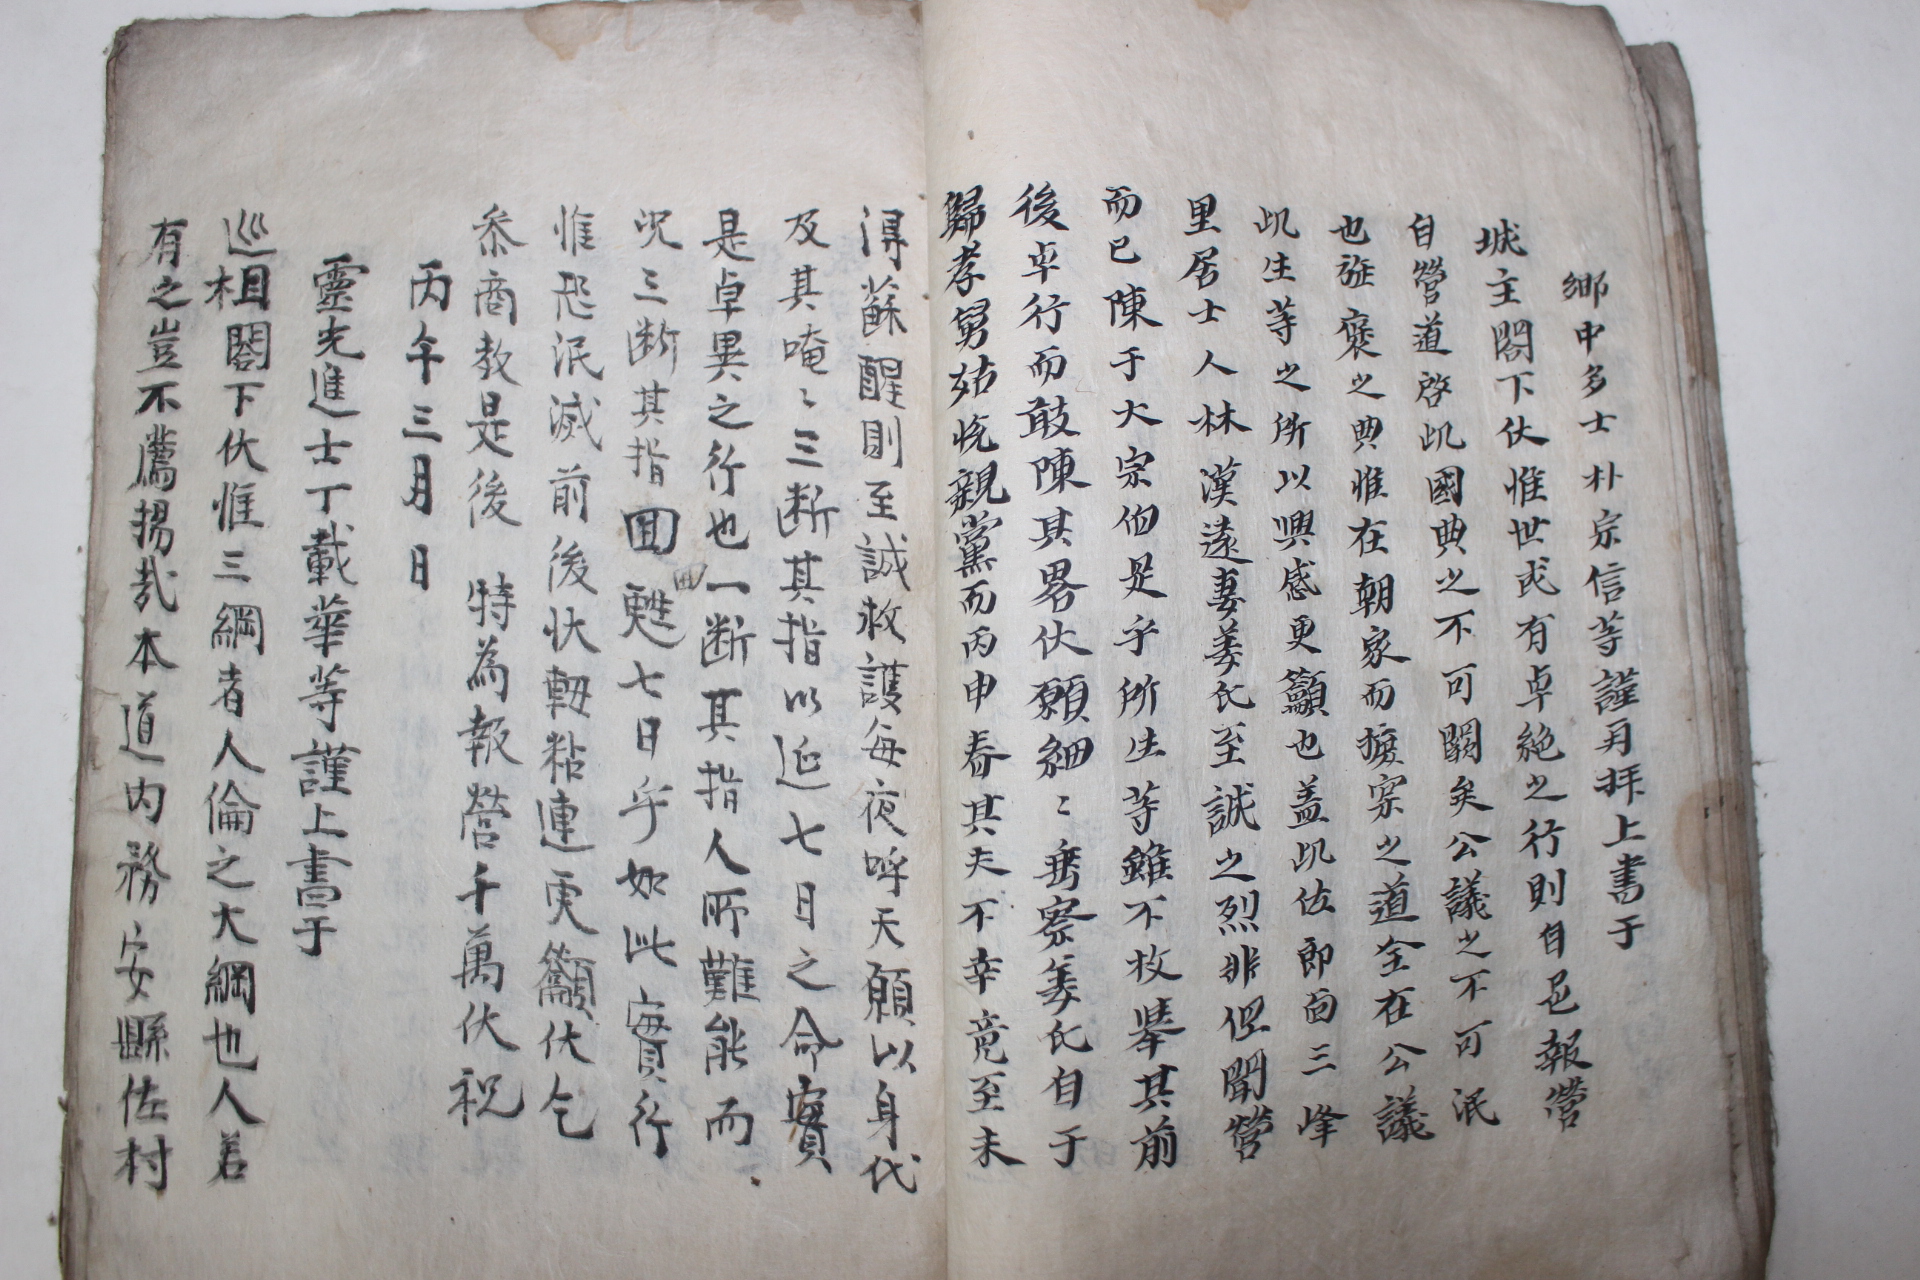 鄉中多士朴宗信等謹再拝上書于
城主閤下伏惟世或有卓絶之行則自邑報營
自營道啓此國典之不可闕矣公議之不可泯
也旌褒之典惟在朝家而擴宗之道全在公議
此生等之所以興感更籲也盖此佐郎面三峰
里居士人林漢遠妻姜氏至誠之烈非但聞營
而已陳于大宗伯是乎所生等雖不枚擧其前
後卓行而敢陳其畧伏願細〻垂察姜氏自于
歸孝舅姑悅親黨而丙申春其夫不幸竟至未
淂蘇醒則至誠救護每夜呼天願以身代
及其唵〻三断其指以延七日之命實
是卓異之行也一断其指人所難能而
况三断其指囬甦七日乎如此實行
惟恐泯滅前後状軸粘連更籲伏乞
叅商教是後 特為報營千萬伏祝
丙午三月日
靈光進士丁載華等謹上書于
巡相閤下伏惟三綱者人倫之大綱也人若
有之豈不薦揚㦲本道內務安縣佐村